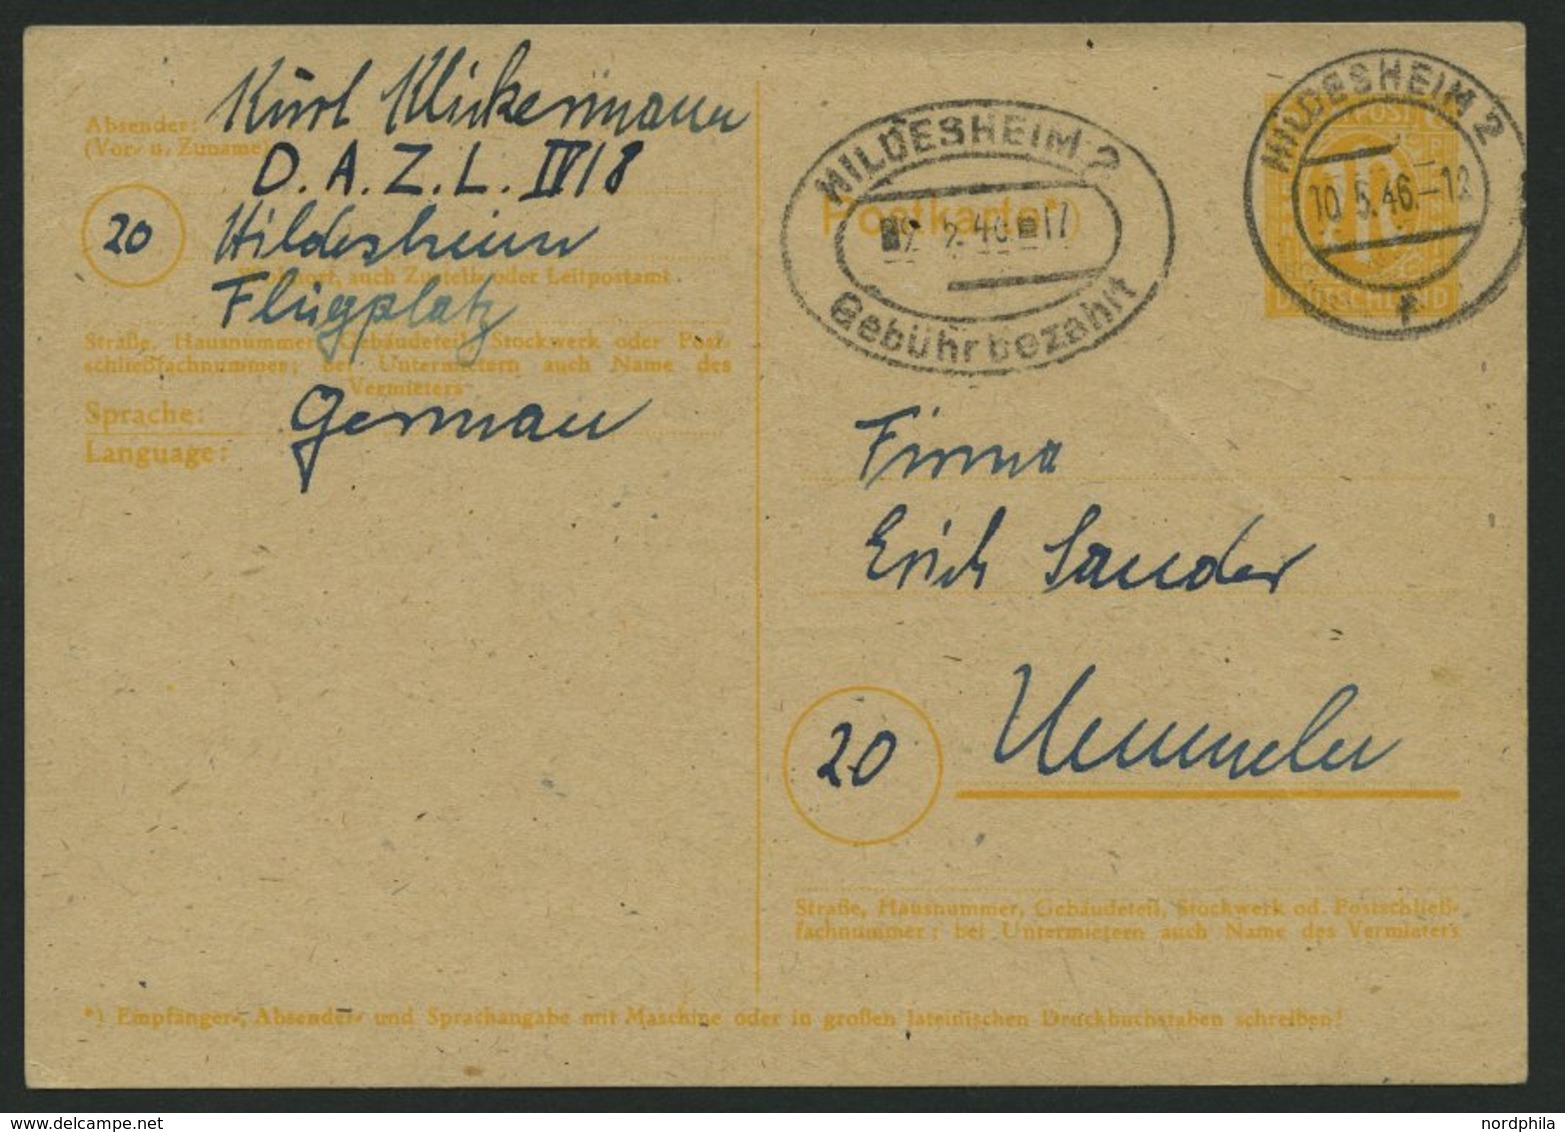 Absender:
(Vor- u. Zuname)
Kurt Klickermann
D. A. Z. L. IV/8
20
Hildesheim
Wohnort, auch Zustell- oder Leitpostamt
Flugplatz
Straße, Hausnummer, Gebäudeteil, Stockwerk oder Post-
schließfachnummer; bei Untermietern auch Name des
Vermieters
Sprache:
Language:
German
HILDESHEIM 2
Postkarte*)
Gebühr bezahlt
HILDESHEIM 2
10.5.46.-12
f
POST
DEUTSCHLAND
Firma
Erich Sander
20
Straße, Hausnummer, Gebäudeteil, Stockwerk od. Postschließ-
fachnummer; bei Untermietern auch Name des Vermieters
*) Empfänger-, Absender- und Sprachangabe mit Maschine oder in großen lateinischen Druckbuchstaben schreiben!
nordphila